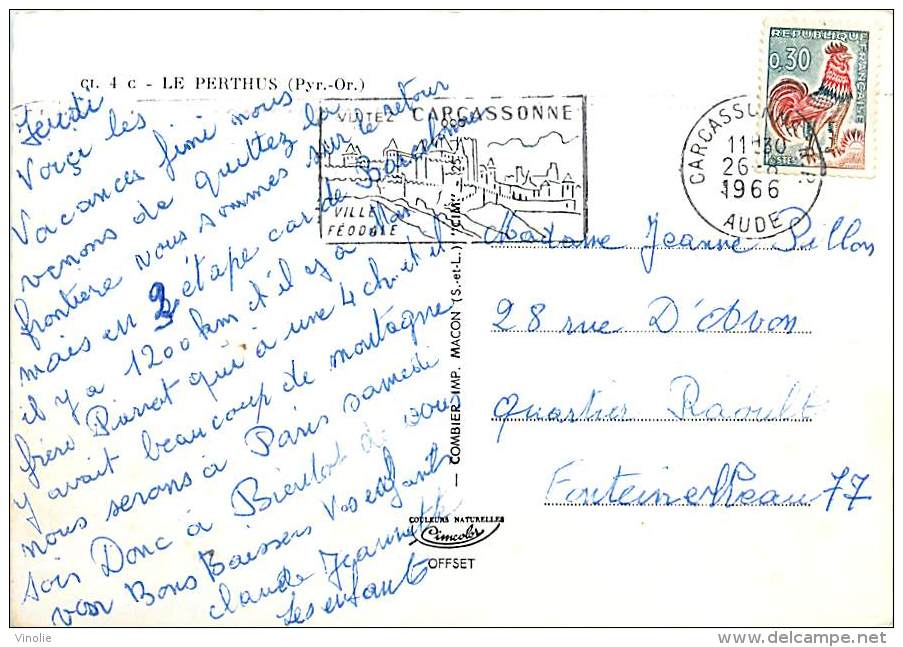 CI. 4 c - LE PERTHUS (Pyr.-Or.)
Jeudi
Voiçi les
Vacances fini nous
venons de quittez la
frontière nous sommes sur le retour
mais en 3 étape car de Barcelonne
il y a 1200 km et il y a Mon
frère Pierrot qui à une 4 ch. et il
y avait beaucoup de montagne
nous serons à Paris samedi
soir Donc à Bientot de vous
voir Bons Baisers Vos enfants
claude Jeannette
Les enfants
VISITEZ CARCASSONNE
VILLE
FÉODALE
CARCASSONNE
11H30
26-8
1966
AUDE
REPUBLIQUE FRANÇAISE
0,30
POSTES
Madame Jeanne Pillon
28 rue D'Avon
Quartier Raoult
Fontainebleau 77
COMBIER IMP. MACON (S.-et-L.) "CIM"
COULEURS NATURELLES
Cimcolor
OFFSET
Vinolie
delcampe.net